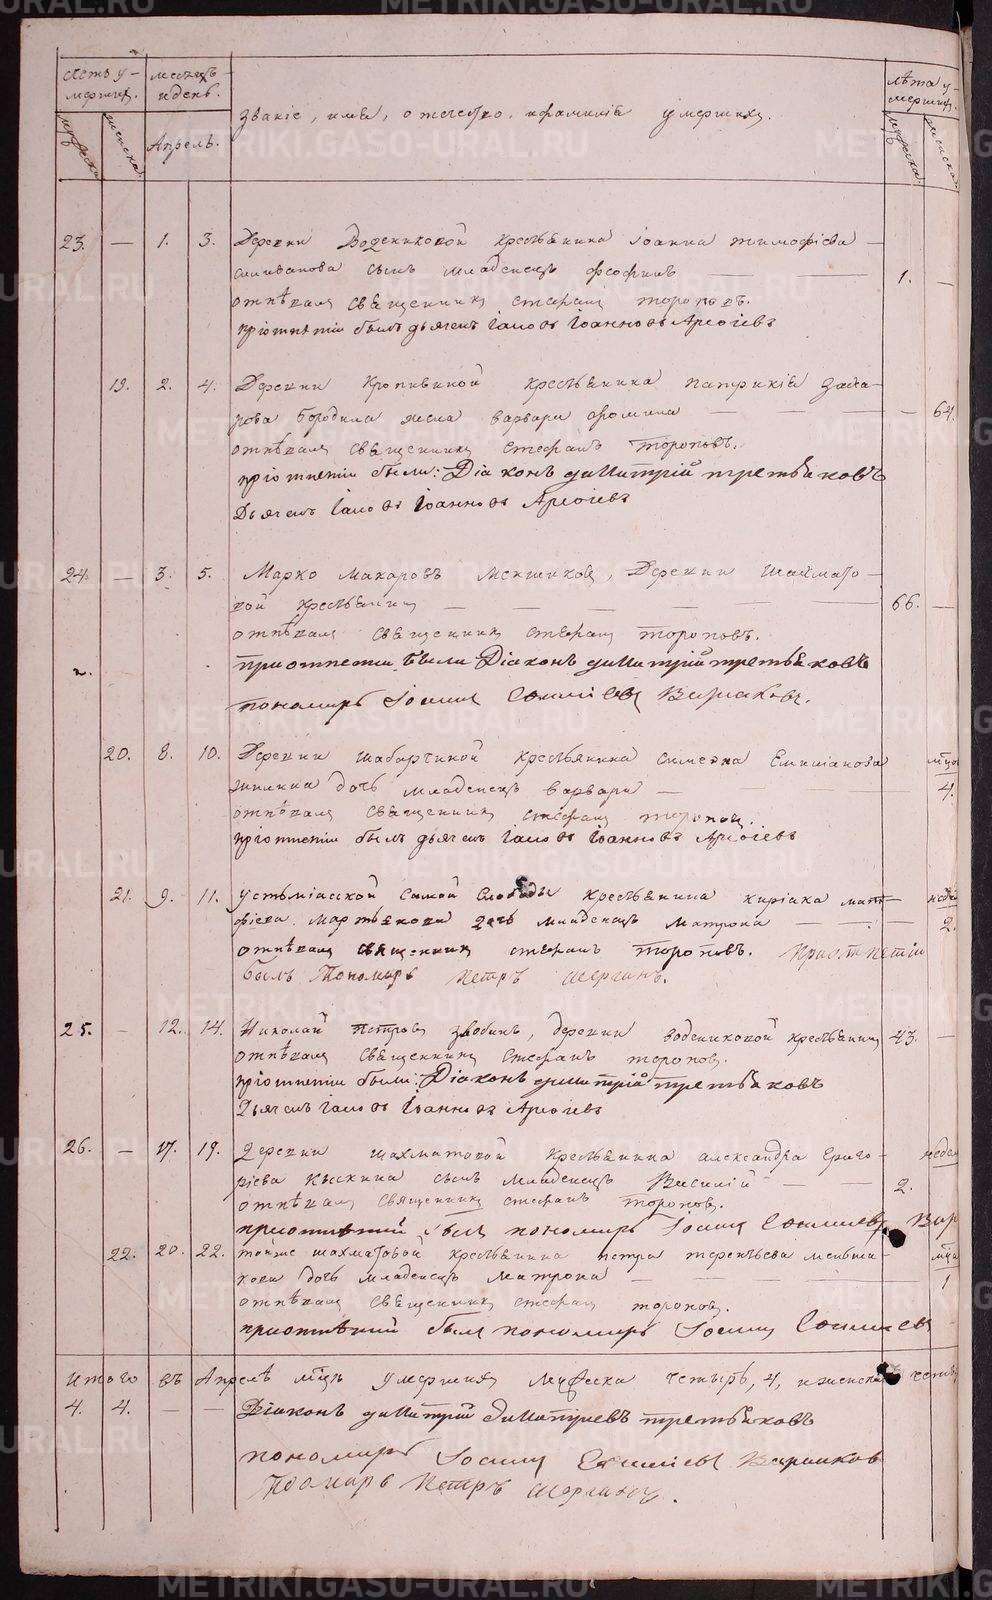 Летъ умерших.
месяцъ и день.
Апрель.
званіе, имя, отечество, и фамилія умершихъ.
лѣта умерших.
мужеска
женска
мужеска
женска
23. — 1. 3. Деревни Водениковой крестьянина Іоанна тимофѣева —
селиванова сынъ младенецъ феофилъ — — 1. —
отпѣвалъ священникъ стефанъ тороповъ.
приотпетіи былъ дьячекъ Іаковъ Іоанновъ Арефіевъ
19. 2. 4. Деревни Кропивиной крестьянина патрикія заха-
рова бородина жена варвара фомина — — — — 64.
отпѣвалъ священникъ стефанъ тороповъ.
приотпетіи были: Діаконъ димитрій третьяковъ
Дьячекъ Іаковъ Іоанновъ Арефіевъ
24. — 3. 5. Марко макаровъ меншиковъ, Деревни шахмато-
вой крестьянинъ — — — — 66. —
отпѣвалъ священникъ стефанъ тороповъ.
приотпетіи были Діаконъ димитрій третьяковъ
пономарь Іосифъ
20. 8. 10. Деревни шабарчиной крестьянина симеона Емилианова
дочь младенецъ варвара — — — 4.
отпѣвалъ священникъ стефанъ тороповъ.
приотпетіи былъ дьячекъ Іаковъ Іоанновъ Арефіевъ
21. 9. 11. устьміасской самой Слободы крестьянина киріака мат-
фіева мартьянова дочь младенецъ матрона — — 2.
отпѣвалъ священникъ стефанъ тороповъ. приотпетіи
былъ Пономарь Петръ Шергинъ.
25. — 12. 14. Николай петровъ злобинъ, деревни водениковой крестьянинъ 43. —
отпѣвалъ священникъ стефанъ тороповъ.
приотпетіи были: Діаконъ димитрій третьяковъ
Дьячекъ Іаковъ Іоанновъ Арефіевъ
26. — 17. 19. Деревни шахматовой крестьянина александра григо-
ріева сынъ младенецъ Василій — — 2.
отпѣвалъ священникъ стефанъ тороповъ.
приотпетіи былъ пономарь Іосифъ
22. 20. 22. тояже шахматовой крестьянина петра терентьева меньша-
кова дочь младенецъ матрона — — — — 1
отпѣвалъ священникъ стефанъ тороповъ.
приотпетіи былъ пономарь Іосифъ
Итого въ Апрелѣ мцѣ умершихъ мужеска четыре, 4, и женска
4. 4. — — Діаконъ димитрій димитріевъ третьяковъ
пономарь Іосифъ
Пономарь Петръ Шергинъ.
METRIKI.GASO-URAL.RU